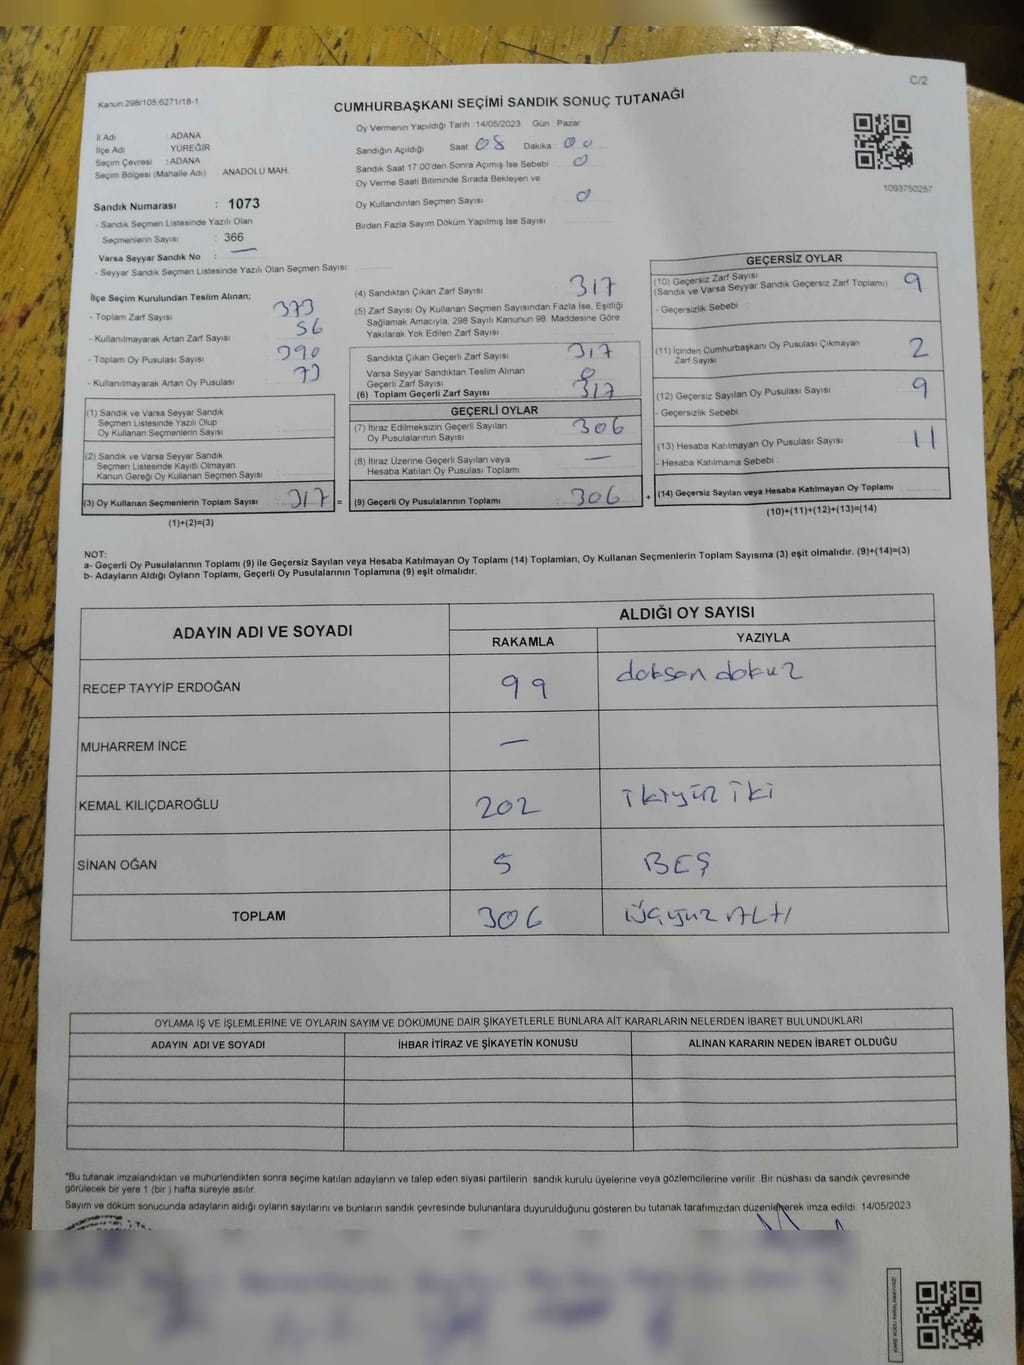 C/2
Kanun:298/105:6271/18-1
CUMHURBAŞKANI SEÇİMİ SANDIK SONUÇ TUTANAĞI
İl Adı : ADANA
İlçe Adı YÜREĞİR
Seçim Çevresi : ADANA
Seçim Bölgesi (Mahalle Adı) ANADOLU MAH.
Sandık Numarası : 1073
- Sandık Seçmen Listesinde Yazılı Olan
Seçmenlerin Sayısı : 366
Varsa Seyyar Sandık No : —
- Seyyar Sandık Seçmen Listesinde Yazılı Olan Seçmen Sayısı
Oy Vermenin Yapıldığı Tarih :14/05/2023 Gün : Pazar
Sandığın Açıldığı Saat 08 Dakika 00
Sandık Saat 17:00'den Sonra Açımış İse Sebebi 0
Oy Verme Saati Bitiminde Sırada Bekleyen ve
Oy Kullandırılan Seçmen Sayısı 0
Birden Fazla Sayım Döküm Yapılmış İse Sayısı
1093750257
İlçe Seçim Kurulundan Teslim Alınan;
- Toplam Zarf Sayısı 373
- Kullanılmayarak Artan Zarf Sayısı 56
- Toplam Oy Pusulası Sayısı 390
- Kullanılmayarak Artan Oy Pusulası 73
(1) Sandık ve Varsa Seyyar Sandık
Seçmen Listesinde Yazılı Olup
Oy Kullanan Seçmenlerin Sayısı
(2) Sandık ve Varsa Seyyar Sandık
Seçmen Listesinde Kayıtlı Olmayan
Kanun Gereği Oy Kullanan Seçmen Sayısı
(3) Oy Kullanan Seçmenlerin Toplam Sayısı 317 =
(1)+(2)=(3)
(4) Sandıktan Çıkan Zarf Sayısı 317
(5) Zarf Sayısı Oy Kullanan Seçmen Sayısından Fazla İse, Eşitliği
Sağlamak Amacıyla, 298 Sayılı Kanunun 98. Maddesine Göre
Yakılarak Yok Edilen Zarf Sayısı
Sandıkta Çıkan Geçerli Zarf Sayısı 317
Varsa Seyyar Sandıktan Teslim Alınan
Geçerli Zarf Sayısı 0
(6) Toplam Geçerli Zarf Sayısı 317
GEÇERLİ OYLAR
(7) İtiraz Edilmeksizin Geçerli Sayılan
Oy Pusulalarının Sayısı 306
(8) İtiraz Üzerine Geçerli Sayılan veya
Hesaba Katılan Oy Pusulası Toplamı —
(9) Geçerli Oy Pusulalarının Toplamı 306 +
GEÇERSİZ OYLAR
(10) Geçersiz Zarf Sayısı
(Sandık ve Varsa Seyyar Sandık Geçersiz Zarf Toplamı) 9
- Geçersizlik Sebebi
(11) İçinden Cumhurbaşkanı Oy Pusulası Çıkmayan
Zarf Sayısı 2
(12) Geçersiz Sayılan Oy Pusulası Sayısı 9
- Geçersizlik Sebebi
(13) Hesaba Katılmayan Oy Pusulası Sayısı 11
- Hesaba Katılmama Sebebi :
(14) Geçersiz Sayılan veya Hesaba Katılmayan Oy Toplamı
(10)+(11)+(12)+(13)=(14)
NOT:
a- Geçerli Oy Pusulalarının Toplamı (9) ile Geçersiz Sayılan veya Hesaba Katılmayan Oy Toplamı (14) Toplamları, Oy Kullanan Seçmenlerin Toplam Sayısına (3) eşit olmalıdır. (9)+(14)=(3)
b- Adayların Aldığı Oyların Toplamı, Geçerli Oy Pusulalarının Toplamına (9) eşit olmalıdır.
ADAYIN ADI VE SOYADI ALDIĞI OY SAYISI
RAKAMLA YAZIYLA
RECEP TAYYİP ERDOĞAN 99 doksan dokuz
MUHARREM İNCE —
KEMAL KILIÇDAROĞLU 202 ikiyüz iki
SİNAN OĞAN 5 BEŞ
TOPLAM 306 üçyüz ALTI
OYLAMA İŞ VE İŞLEMLERİNE VE OYLARIN SAYIM VE DÖKÜMÜNE DAİR ŞİKAYETLERLE BUNLARA AİT KARARLARIN NELERDEN İBARET BULUNDUKLARI
ADAYIN ADI VE SOYADI İHBAR İTİRAZ VE ŞİKAYETİN KONUSU ALINAN KARARIN NEDEN İBARET OLDUĞU
*Bu tutanak imzalandıktan ve mühürlendikten sonra seçime katılan adayların ve talep eden siyasi partilerin sandık kurulu üyelerine veya gözlemcilerine verilir. Bir nüshası da sandık çevresinde
görülecek bir yere 1 (bir ) hafta süreyle asılır.
Sayım ve döküm sonucunda adayların aldığı oyların sayılarını ve bunların sandık çevresinde bulunanlara duyurulduğunu gösteren bu tutanak tarafımızdan düzenlenerek imza edildi. 14/05/2023